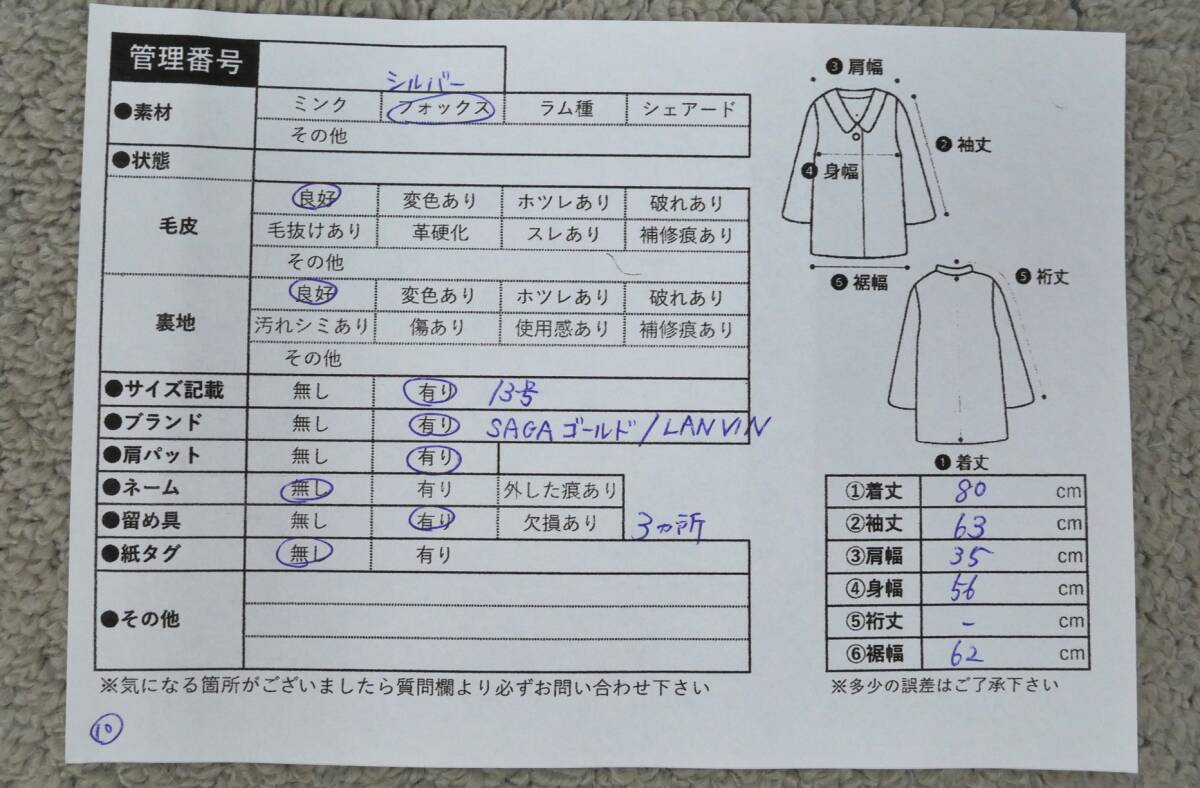 管理番号
シルバー
●素材 ミンク フォックス ラム種 シェアード
その他
●状態
毛皮 良好 変色あり ホツレあり 破れあり
毛抜けあり 革硬化 スレあり 補修痕あり
その他
裏地 良好 変色あり ホツレあり 破れあり
汚れシミあり 傷あり 使用感あり 補修痕あり
その他
●サイズ記載 無し 有り 13号
●ブランド 無し 有り SAGAゴールド/LANVIN
●肩パット 無し 有り
●ネーム 無し 有り 外した痕あり
●留め具 無し 有り 欠損あり 3ヵ所
●紙タグ 無し 有り
●その他
※気になる箇所がございましたら質問欄より必ずお問い合わせ下さい
10
❸肩幅
❷袖丈
❹身幅
❻裾幅
❺裄丈
❶着丈
①着丈 80 cm
②袖丈 63 cm
③肩幅 35 cm
④身幅 56 cm
⑤裄丈 - cm
⑥裾幅 62 cm
※多少の誤差はご了承下さい